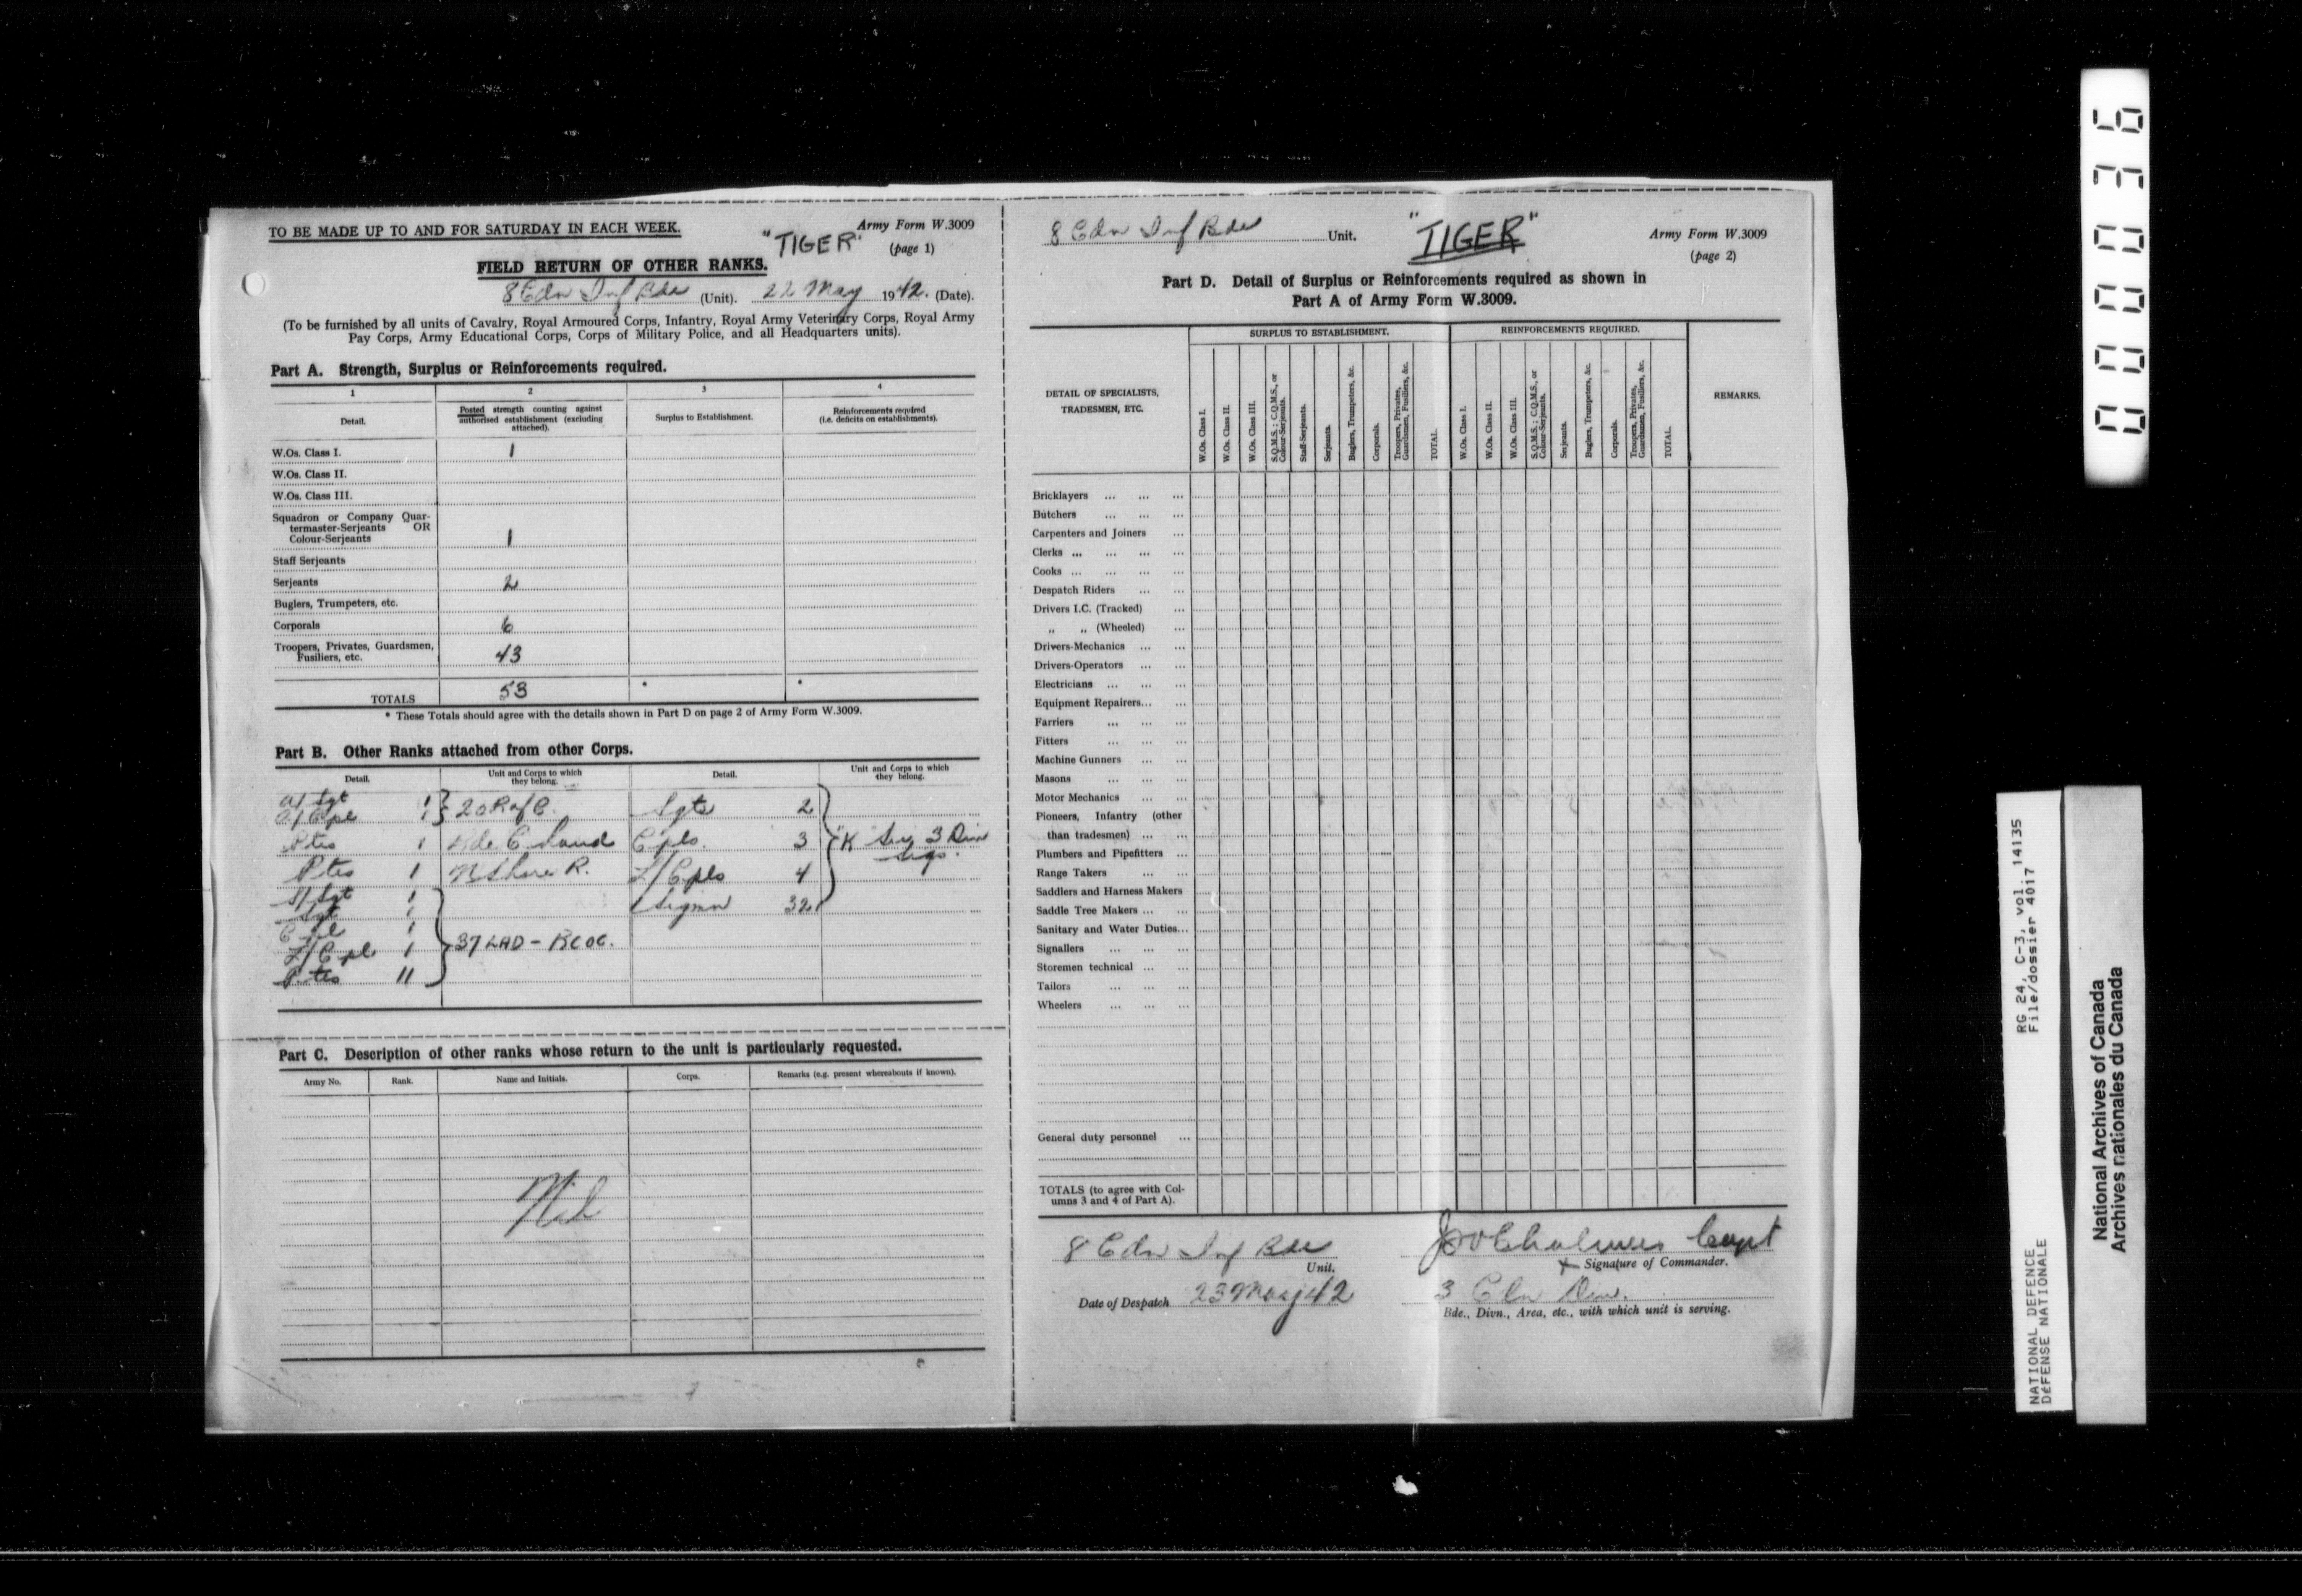 TO BE MADE UP TO AND FOR SATURDAY IN EACH WEEK.
Army Form W.3009
"TIGER"
(page 1)
FIELD RETURN OF OTHER RANKS.
8 Cdn Inf Bde (Unit). 22 May 1942. (Date).
(To be furnished by all units of Cavalry, Royal Armoured Corps, Infantry, Royal Army Veterinary Corps, Royal Army
Pay Corps, Army Educational Corps, Corps of Military Police, and all Headquarters units).
Part A. Strength, Surplus or Reinforcements required.
1 2 3 4
Detail.
Posted strength counting against
authorised establishment (excluding
attached).
Surplus to Establishment.
Reinforcements required
(i.e. deficits on establishments).
W.Os. Class I. 1
W.Os. Class II.
W.Os. Class III.
Squadron or Company Quar-
termaster-Serjeants OR
Colour-Serjeants 1
Staff Serjeants
Serjeants 2
Buglers, Trumpeters, etc.
Corporals 6
Troopers, Privates, Guardsmen,
Fusiliers, etc. 43
TOTALS 53 * *
* These Totals should agree with the details shown in Part D on page 2 of Army Form W.3009.
Part B. Other Ranks attached from other Corps.
Detail.
Unit and Corps to which
they belong.
Detail.
Unit and Corps to which
they belong.
A/Sgt 1
A/Cpl 1
2 QR of C.
Sgts 2
Ptes 1 R de Chaud Cpls. 3 "K Sec 3 Div
Sigs.
Ptes 1 N Shore R. L/Cpls 4
S/Sgt 1
Sgt 1
Sigmn 32
Cpl 1
L/Cpl 1
37 LAD - RCOC.
Ptes 11
Part C. Description of other ranks whose return to the unit is particularly requested.
Army No. Rank. Name and Initials. Corps. Remarks (e.g. present whereabouts if known).
Nil
8 Cdn Inf Bde Unit.
"TIGER"
Army Form W.3009
(page 2)
Part D. Detail of Surplus or Reinforcements required as shown in
Part A of Army Form W.3009.
DETAIL OF SPECIALISTS,
TRADESMEN, ETC.
SURPLUS TO ESTABLISHMENT.
REINFORCEMENTS REQUIRED.
REMARKS.
W.Os. Class I.
W.Os. Class II.
W.Os. Class III.
S.Q.M.S.; C.Q.M.S., or
Colour-Serjeants.
Staff-Serjeants.
Serjeants.
Buglers, Trumpeters, &c.
Corporals.
Troopers, Privates,
Guardsmen, Fusiliers, &c.
TOTAL.
W.Os. Class I.
W.Os. Class II.
W.Os. Class III.
S.Q.M.S.; C.Q.M.S., or
Colour-Serjeants.
Serjeants.
Buglers, Trumpeters, &c.
Corporals.
Troopers, Privates,
Guardsmen, Fusiliers, &c.
TOTAL.
Bricklayers ... ... ...
Butchers ... ... ...
Carpenters and Joiners ...
Clerks ... ... ... ...
Cooks ... ... ... ...
Despatch Riders ... ...
Drivers I.C. (Tracked) ...
„ „ (Wheeled) ...
Drivers-Mechanics ... ...
Drivers-Operators ... ...
Electricians ... ... ...
Equipment Repairers... ...
Farriers ... ... ...
Fitters ... ... ...
Machine Gunners ... ...
Masons ... ... ...
Motor Mechanics ... ...
Pioneers, Infantry (other
than tradesmen) ... ...
Plumbers and Pipefitters ...
Range Takers ... ...
Saddlers and Harness Makers
Saddle Tree Makers ... ...
Sanitary and Water Duties...
Signallers ... ... ...
Storemen technical ... ...
Tailors ... ... ...
Wheelers ... ... ...
General duty personnel ...
TOTALS (to agree with Col-
umns 3 and 4 of Part A).
8 Cdn Inf Bde
Unit.
Chalmers Capt
Signature of Commander.
Date of Despatch 23 May 42
3 Cdn Div.
Bde., Divn., Area, etc., with which unit is serving.
000036
RG 24, C-3, vol. 14135
File/dossier 4017
NATIONAL DEFENCE
DÉFENSE NATIONALE
National Archives of Canada
Archives nationales du Canada